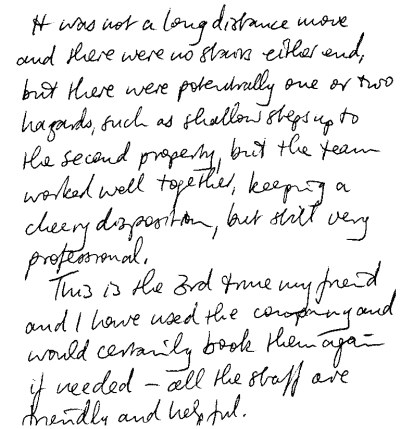 It was not a long distance move
and there were no stairs either end,
but there were potentially one or two
hazards, such as shallow steps up to
the second property, but the team
worked well together, keeping a
cheery disposition, but still very
professional.
This is the 3rd time my friend
and I have used the company and
would certainly book them again
if needed – all the staff are
friendly and helpful.